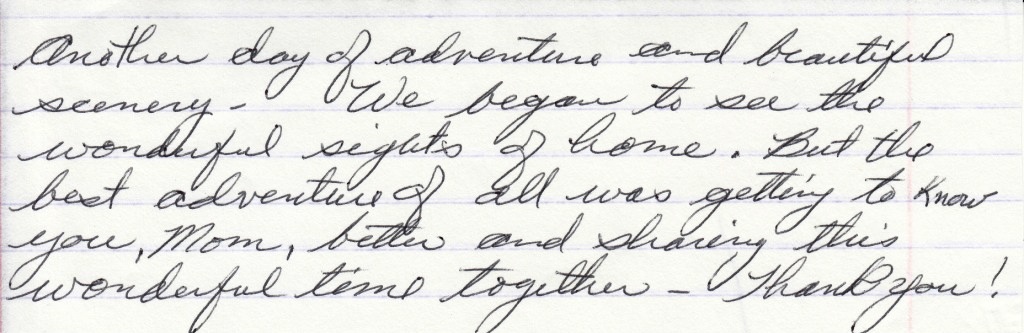 Another day of adventure and beautiful
scenery - We began to see the
wonderful sights of home. But the
best adventure of all was getting to know
you, Mom, better and sharing this
wonderful time together - Thank you!